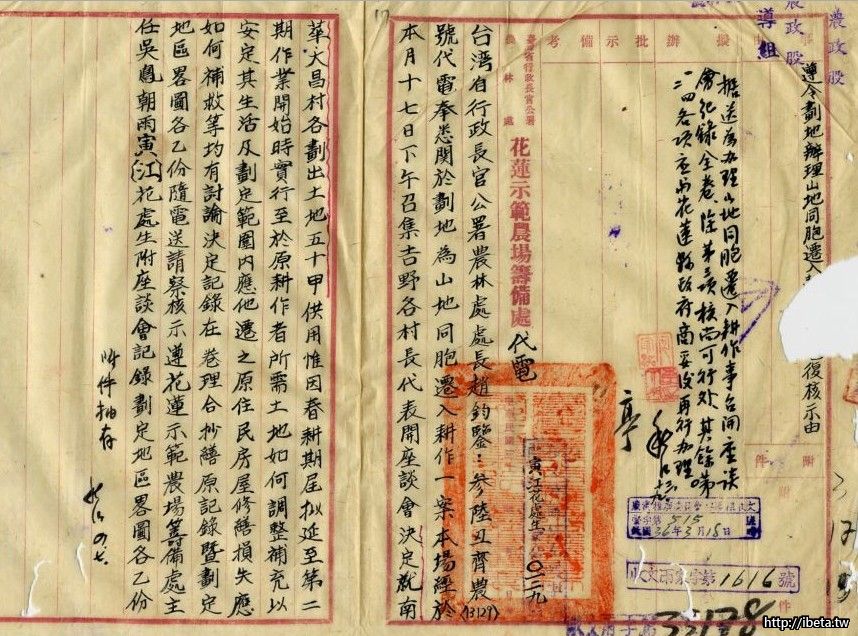 農政股
農政股
導組
考備示批辦擬
遵令劃地辦理山地同胞遷入
復核示由
據送為辦理山地同胞遷入耕作事召開座談
會紀錄全卷除第三項核尚可行外其餘第
一二四各項应由花蓮縣政府商妥後再行辦理
附件
臺灣省行政長官公署農林處
花蓮示範農場籌備處代電
寅江花處生
〇一二九
36年3月18日
515
收文
字第1616號
33178
台湾省行政長官公署農林處處長趙鈞鑒：參陸丑齊農
(13129)
號代電奉悉關於劃地為山地同胞遷入耕作一案本場經於
本月十七日下午召集吉野各村長代表開座談會決定就南
17
華大昌村各劃出土地五十甲供用惟因春耕期屆拟延至第二
期作業開始時實行至於原耕作者所需土地如何調整補充以
安定其生活及劃定範圍內應他遷之原住民房屋修繕損失應
如何補救等均有討論決定記錄在卷理合抄繕原記錄暨劃定
地區畧圖各乙份隨電送請察核示遵花蓮示範農場籌備處主
任吳鳧朝雨寅(江)花處生附座談會記錄劃定地區畧圖各乙份
附件抽存
http://ibeta.tw